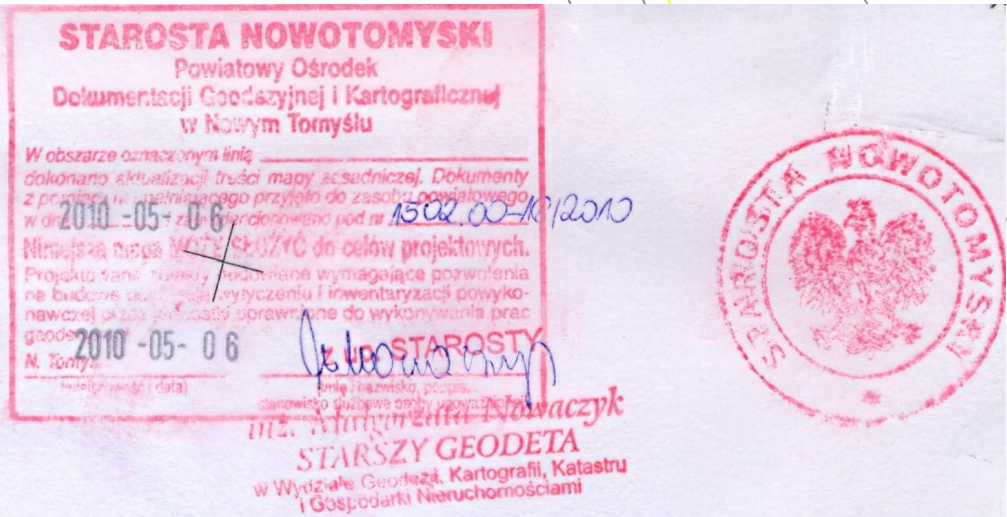 STAROSTA NOWOTOMYSKI
Powiatowy Ośrodek
Dokumentacji Geodezyjnej i Kartograficznej
w Nowym Tomyślu
W obszarze oznaczonym linią
dokonano aktualizacji treści mapy zasadniczej. Dokumenty
z pomiaru uzupełniającego przyjęto do zasobu powiatowego
w dniu 2010 -05- 06 zaewidencjonowano pod nr 1502.00-16/2010
Niniejsza mapa MOŻE SŁUŻYĆ do celów projektowych.
Projektowane obiekty budowlane wymagające pozwolenia
na budowę podlegają wytyczeniu i inwentaryzacji powyko-
nawczej przez jednostki uprawnione do wykonywania prac
2010 -05- 06
z up. STAROSTY
N. Tomyśl
(miejscowość i data)
(imię i nazwisko, podpis,
stanowisko służbowe osoby
inż. Małgorzata Nowaczyk
STARSZY GEODETA
w Wydziale Geodezji, Kartografii, Katastru
i Gospodarki Nieruchomościami
STAROSTA NOWOTOMYSKI